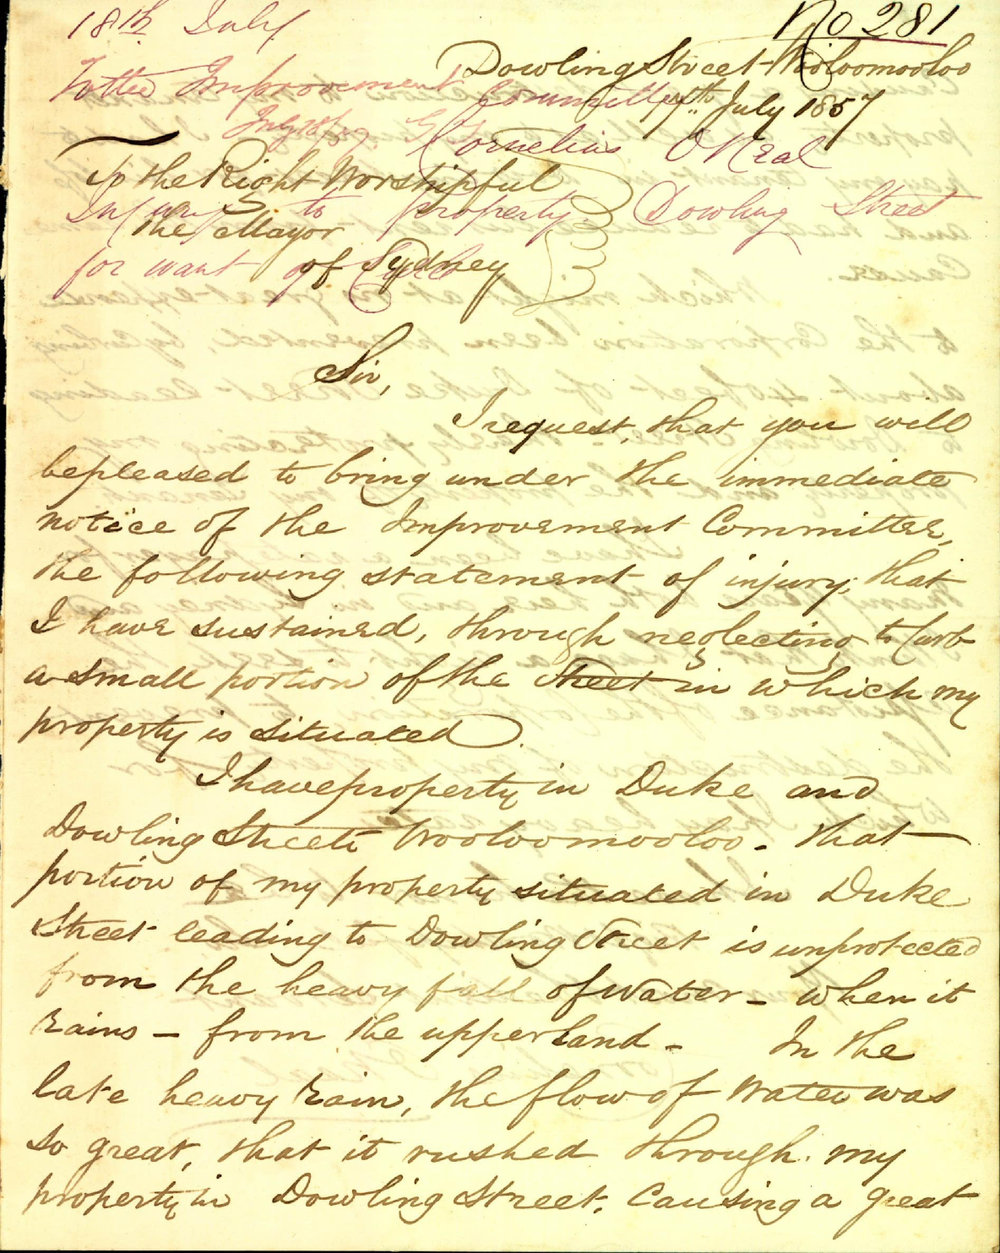 No 281
18th July
Dowling Street Wooloomooloo
17th July 1857
To the Improvement Committee
Cornelius O'Neal
Injury to property Dowling Street
for want of Curb
To the Right Worshipful
the Mayor
of Sydney
Sir,
I request, that you will
be pleased to bring under the immediate
notice of the Improvement Committee,
the following statement of injury, that
I have sustained, through neglecting to Curb
a small portion of the Street in which my
property is situated.
I have property in Duke and
Dowling Streets Wooloomooloo. that
portion of my property situated in Duke
Street leading to Dowling Street is unprotected
from the heavy fall of Water – when it
rains – from the upper land – In the
late heavy rain, the flow of Water was
so great, that it rushed through my
property in Dowling Street, Causing a great